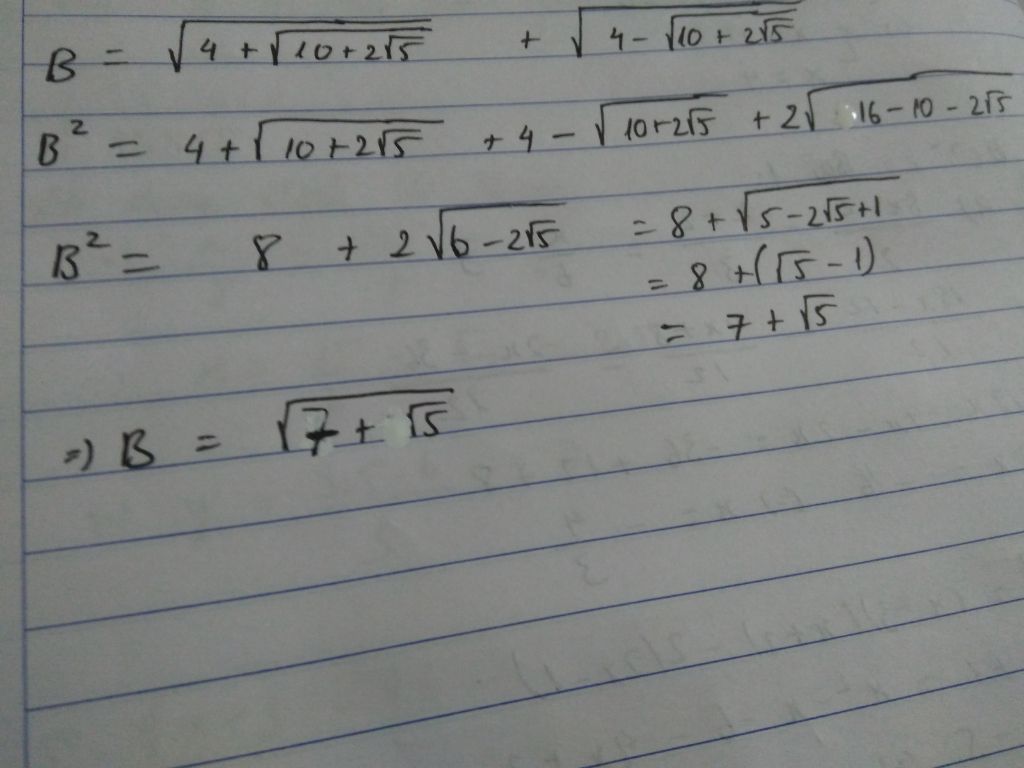 B = √(4 + √(10 + 2√5)) + √(4 - √(10 + 2√5))
B² = 4 + √(10 + 2√5) + 4 - √(10 + 2√5) + 2√(16 - 10 - 2√5)
B² = 8 + 2√(6 - 2√5) = 8 + √(5 - 2√5 + 1)
= 8 + (√5 - 1)
= 7 + √5
=) B = √(7 + √5)